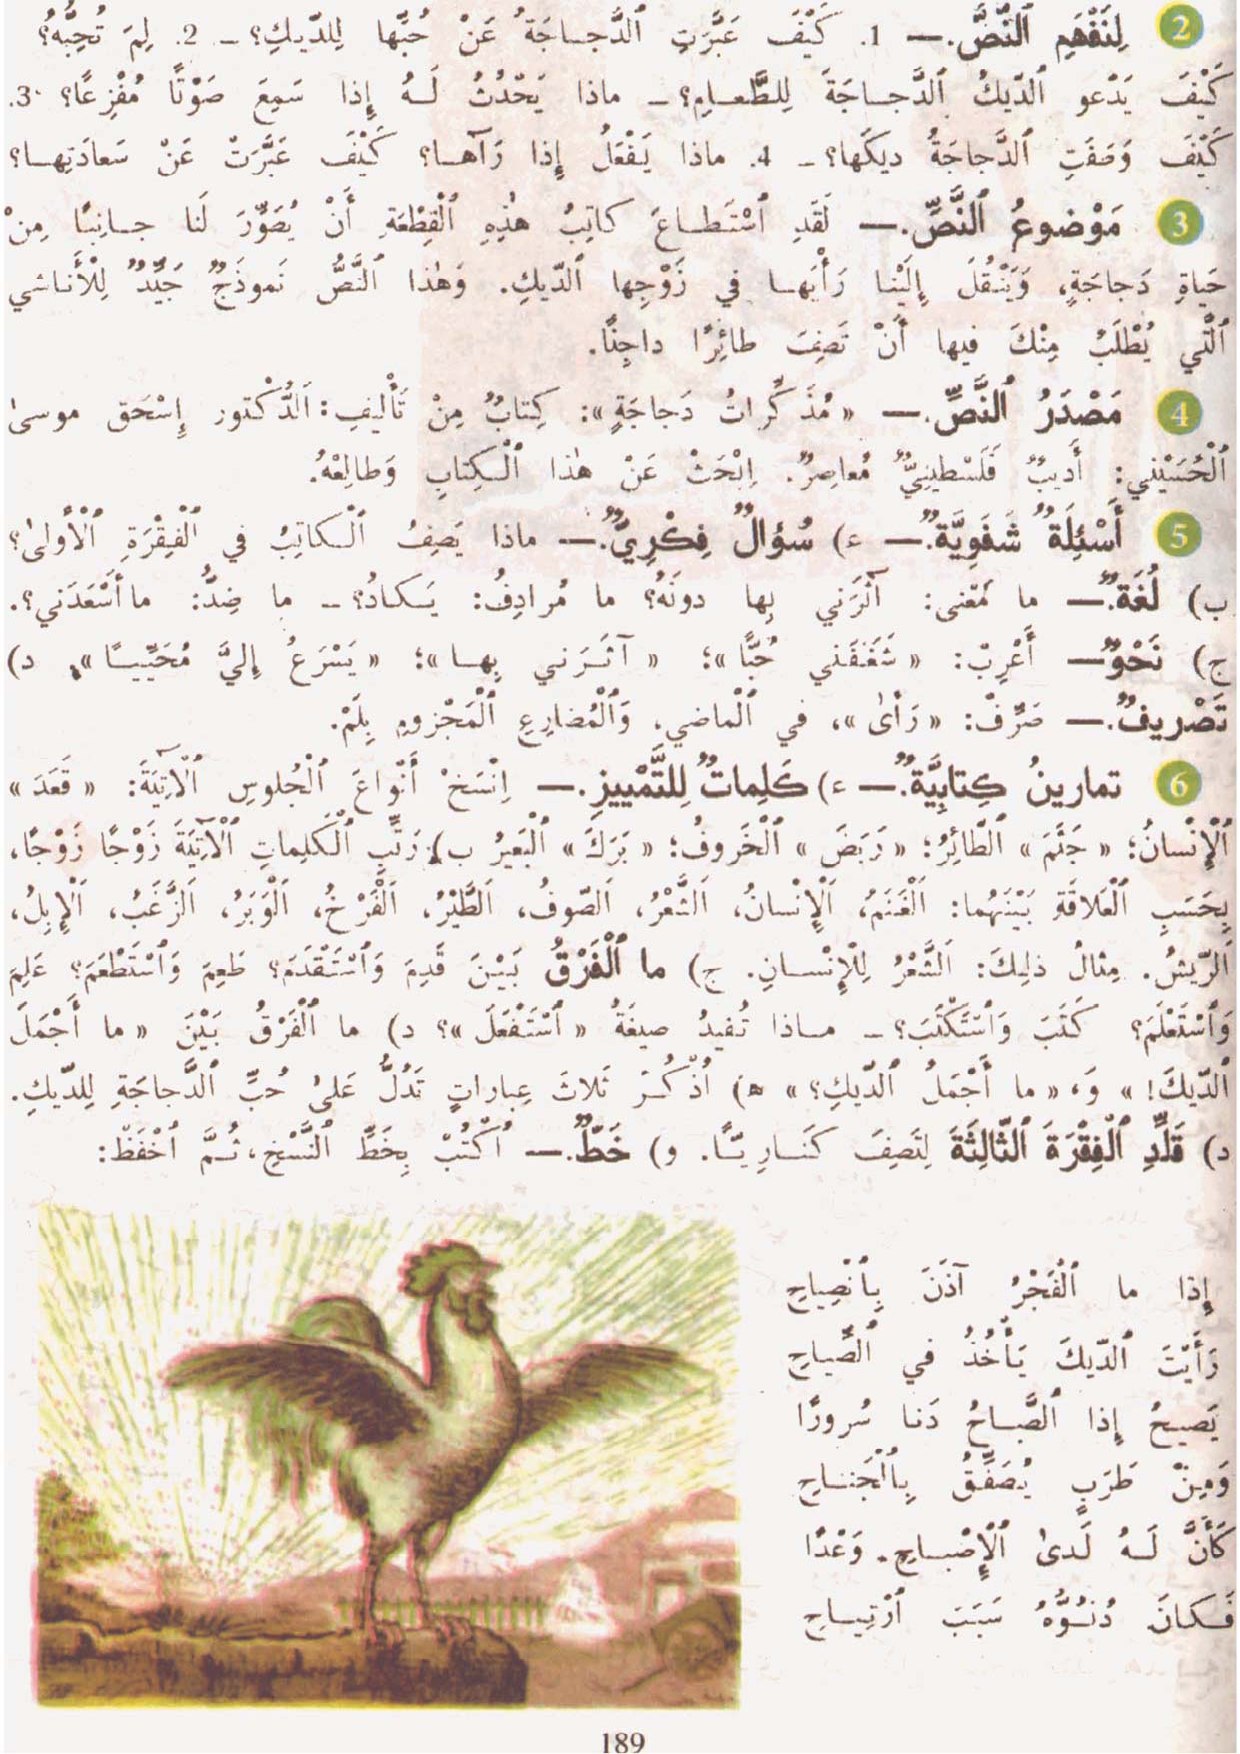 2 لِنَفْهَمِ ٱلنَّصَّ.— 1. كَيْفَ عَبَّرَتِ ٱلدَّجاجَةُ عَنْ حُبِّها لِلدّيكِ؟ – 2. لِمَ تُحِبُّهُ؟
كَيْفَ يَدْعو ٱلدّيكُ ٱلدَّجاجَةَ لِلطَّعامِ؟ – ماذا يَحْدُثُ لَهُ إِذا سَمِعَ صَوْتًا مُفْزِعًا؟ 3.
كَيْفَ وَصَفَتِ ٱلدَّجاجَةُ ديكَها؟ – 4. ماذا يَفْعَلُ إِذا رَآها؟ كَيْفَ عَبَّرَتْ عَنْ سَعادَتِها؟
3 مَوْضوعُ ٱلنَّصِّ.— لَقَدِ ٱسْتَطاعَ كاتِبُ هٰذِهِ ٱلْقِطْعَةِ أَنْ يُصَوِّرَ لَنا جانِبًا مِنْ
حَياةِ دَجاجَةٍ، وَيَنْقُلَ إِلَيْنا رَأْيَها في زَوْجِها ٱلدّيكِ. وَهٰذا ٱلنَّصُّ نَموذَجٌ جَيِّدٌ لِلْأَناشي
ٱلَّتي يُطْلَبُ مِنْكَ فيها أَنْ تَصِفَ طائِرًا داجِنًا.
4 مَصْدَرُ ٱلنَّصِّ.— « مُذَكِّراتُ دَجاجَةٍ »: كِتابٌ مِنْ تَأْليفِ: اَلدُّكْتور إِسْحَق موسىٰ
ٱلْحُسَيْني: أَديبٌ فَلَسْطينِيٌّ مُعاصِرٌ. اِبْحَثْ عَنْ هٰذا ٱلْكِتابِ وَطالِعْهُ.
5 أَسْئِلَةٌ شَفَوِيَّةٌ.— ء) سُؤالٌ فِكْرِيٌّ.— ماذا يَصِفُ ٱلْكاتِبُ في ٱلْفِقْرَةِ ٱلْأولىٰ؟
ب) لُغَةٌ.— ما مَعْنى: آثَرَني بِها دونَهُ؟ ما مُرادِفُ: يَكادُ؟ – ما ضِدُّ: ما أَسْعَدَني؟.
ج) نَحْوٌ— أَعْرِبْ: « شَغَفَني حُبًّا »؛ « آثَرَني بِها »؛ « يَسْرَعُ إِلَيَّ مُحَيِّيًا ». د)
تَصْريفٌ.— صَرِّفْ: « رَأىٰ »، في ٱلْماضي، وَٱلْمُضارِعِ ٱلْمَجْزومِ بِلَمْ.
6 تمارينُ كِتابِيَّةٌ.— ء) كَلِماتٌ لِلتَّمْييزِ.— اِنْسَخْ أَنْواعَ ٱلْجُلوسِ ٱلْآتِيَةَ: « قَعَدَ »
ٱلْإِنْسانُ؛ « جَثَمَ » ٱلطّائِرُ؛ « رَبَضَ » ٱلْخَروفُ؛ « بَرَكَ » ٱلْبَعيرُ ب) رَتِّبِ ٱلْكَلِماتِ ٱلْآتِيَةَ زَوْجًا زَوْجًا،
بِحَسَبِ ٱلْعَلاقَةِ بَيْنَهُما: اَلْغَنَمُ، اَلْإِنْسانُ، اَلشَّعْرُ، اَلصّوفُ، اَلطَّيْرُ، اَلْفَرْخُ، اَلْوَبَرُ، اَلزَّغَبُ، اَلْإِبِلُ،
اَلرّيشُ. مِثالُ ذٰلِكَ: اَلشَّعْرُ لِلْإِنْسانِ. ج) ما ٱلْفَرْقُ بَيْنَ قَدِمَ وَٱسْتَقْدَمَ؟ طَعِمَ وَٱسْتَطْعَمَ؟ عَلِمَ
وَٱسْتَعْلَمَ؟ كَتَبَ وَٱسْتَكْتَبَ؟ – ماذا تُفيدُ صيغَةُ « ٱسْتَفْعَلَ »؟ د) ما ٱلْفَرْقُ بَيْنَ « ما أَجْمَلَ
ٱلدّيكَ! » وَ، « ما أَجْمَلُ ٱلدّيكِ؟ » ه) اُذْكُرْ ثَلاثَ عِباراتٍ تَدُلُّ عَلىٰ حُبِّ ٱلدَّجاجَةِ لِلدّيكِ.
د) قَلِّدِ ٱلْفِقْرَةَ ٱلثّالِثَةَ لِتَصِفَ كَنارِيًّا. و) خَطٌّ.— اُكْتُبْ بِخَطِّ ٱلنَّسْخِ، ثُمَّ ٱحْفَظْ:
إِذا ما ٱلْفَجْرُ آذَنَ بِٱنْصِياحِ
رَأَيْتَ ٱلدّيكَ يَأْخُذُ في ٱلصِّياحِ
يَصيحُ إِذا ٱلصَّباحُ دَنا سُرورًا
وَمِنْ طَرَبٍ يُصَفِّقُ بِٱلْجَناحِ
كَأَنَّ لَهُ لَدىٰ ٱلْإِصْباحِ. وَعْدًا
فَكانَ دُنُوُّهُ سَبَبَ ٱرْتِياحِ
189